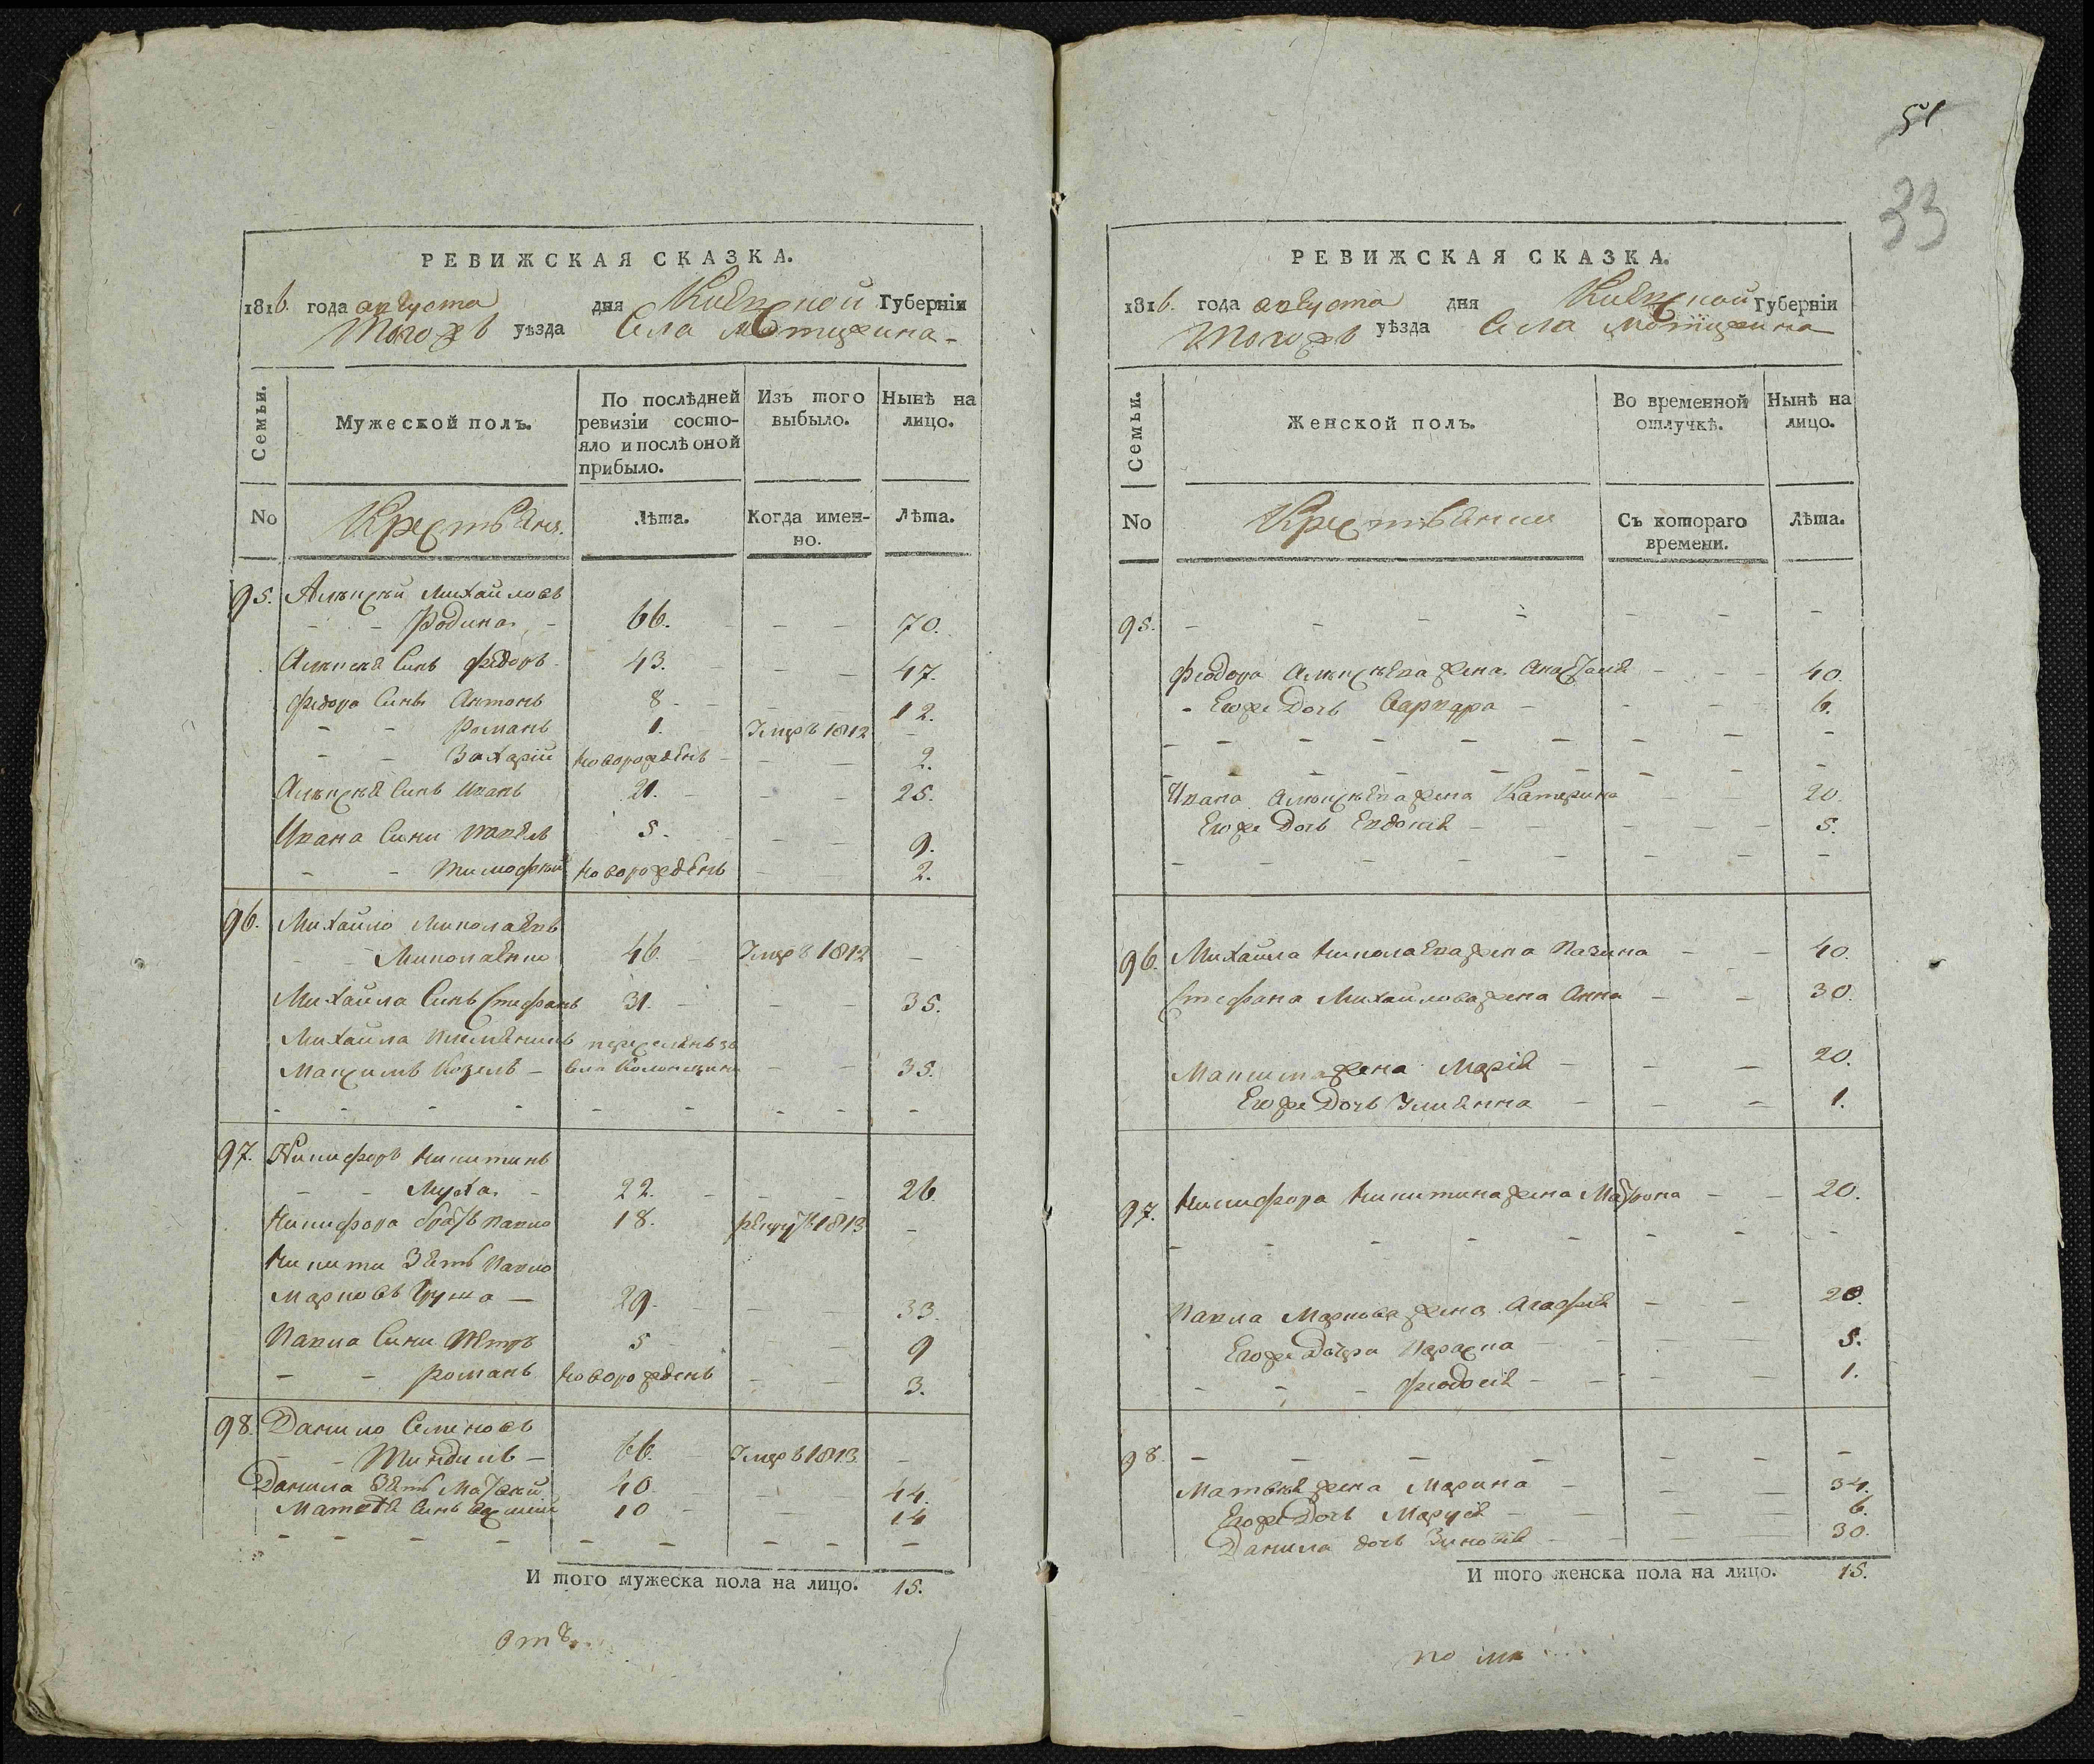 РЕВИЖСКАЯ СКАЗКА.
1816. года августа дня Киевской Губерніи
Тогожъ уѣзда Села Мотижина
Семьи.
Мужеской полъ.
По послѣдней ревизіи состо-
яло и послѣ оной прибыло.
Изъ того выбыло.
Нынѣ на лицо.
No
Крестьяня.
Лѣта.
Когда имен-
но.
Лѣта.
95. Алексѣй Михайловъ
Родина 66. 70.
Алексѣя Синъ Федоръ 43. 47.
Федора Синъ Антонъ 8 12.
Романъ 1. Умеръ 1812
Захарій новорожденъ 2.
Алексѣя Синъ Иванъ 21. 25.
Ивана Сини 5. 9.
Тимофей новорожденъ 2.
96. Михайло Николаевъ
46. Умеръ 1812
Михайла Синъ Стефанъ 31. 35.
Михайла племянникъ
Максимъ Козелъ 35.
97. Никифоръ Никитинъ
Муха 22. 26.
Никифора братъ Павло 18. рекрутъ 1813
Никити Зять Павло
Марковъ Груша 29. 33.
Павла Сини Петръ 5 9
Романъ новорожденъ 3.
98. Данило Семеновъ
66. Умеръ 1813
Данила Зять Матвей 40 44.
Матвѣя Синъ 10 14
И того мужеска пола на лицо. 15.
51
33
РЕВИЖСКАЯ СКАЗКА.
1816. года августа дня Киевской Губерніи
Тогожъ уѣзда Села Мотижина
Семьи.
Женской полъ.
Во временной отлучкѣ.
Нынѣ на лицо.
No
Крестьянки
Съ котораго времени.
Лѣта.
95.
Феодора Алексѣева жена 40.
Егоже Дочь Варвара 6.
Ивана Алексѣева жена Катерина 20.
Егоже Дочь Евдокія 5.
96. Михайла Николаева жена 40.
Стефана Михайлова жена Анна 30.
Максима жена Марія 20.
Егоже Дочь Улиянна 1.
97. Никифора Никитина жена Матрона 20.
Павла Маркова жена Агафія 20.
Егоже Дочра Параска 5.
Феодосія 1.
98.
Матвѣя жена Марина 34.
Егоже Дочь 6.
Данила дочь Зиновія 30.
И того женска пола на лицо. 15.